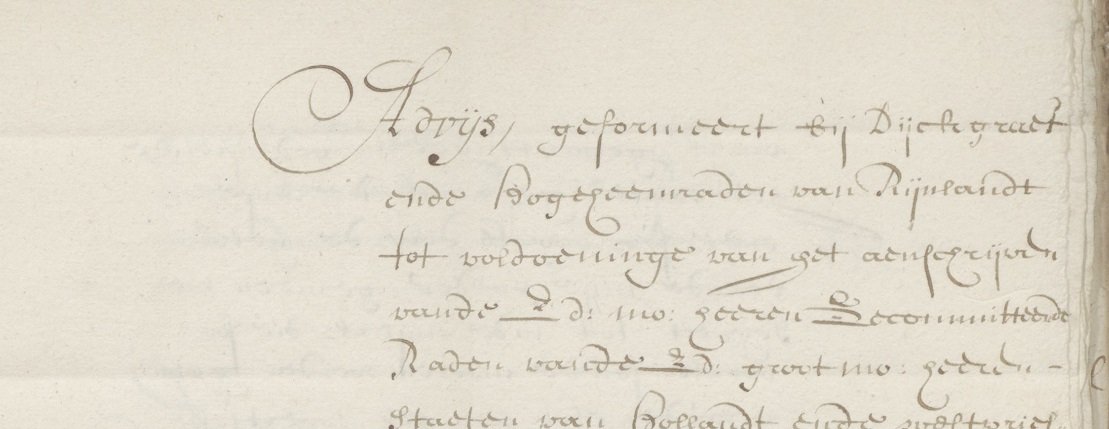 Advijs, geformeert bij Dijckgraef
ende Hogeheemraden van Rijnlandt
tot voldoeninge van het aenschrijven
vande Ed: mo: heeren Gecommitteerde
Raden vande Ed: groot mo: heeren -
Staeten van Hollandt ende westvries-